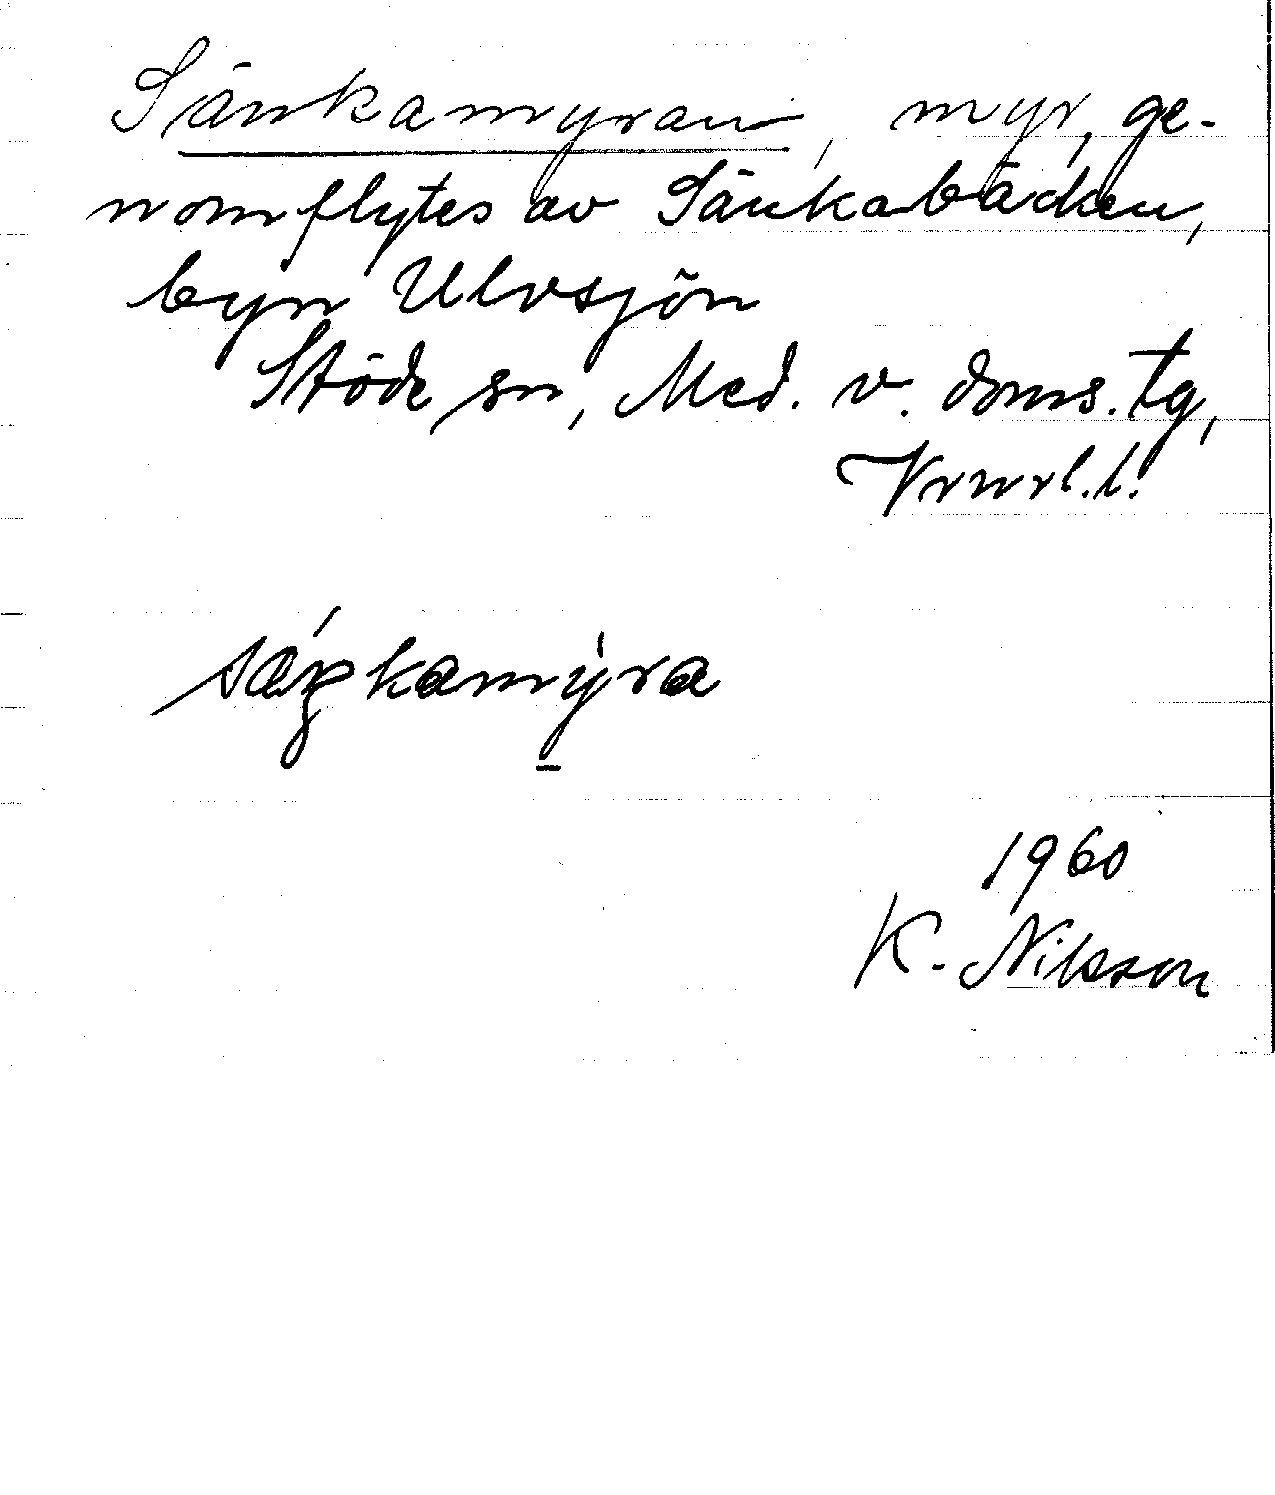 Sänkamyran, myr, ge-
nomflytes av Sänkabäcken,
byn Ulvsjön
Stöde sn, Med. v. doms. tg,
Vrnrl. l.
1960
K. Nilsson